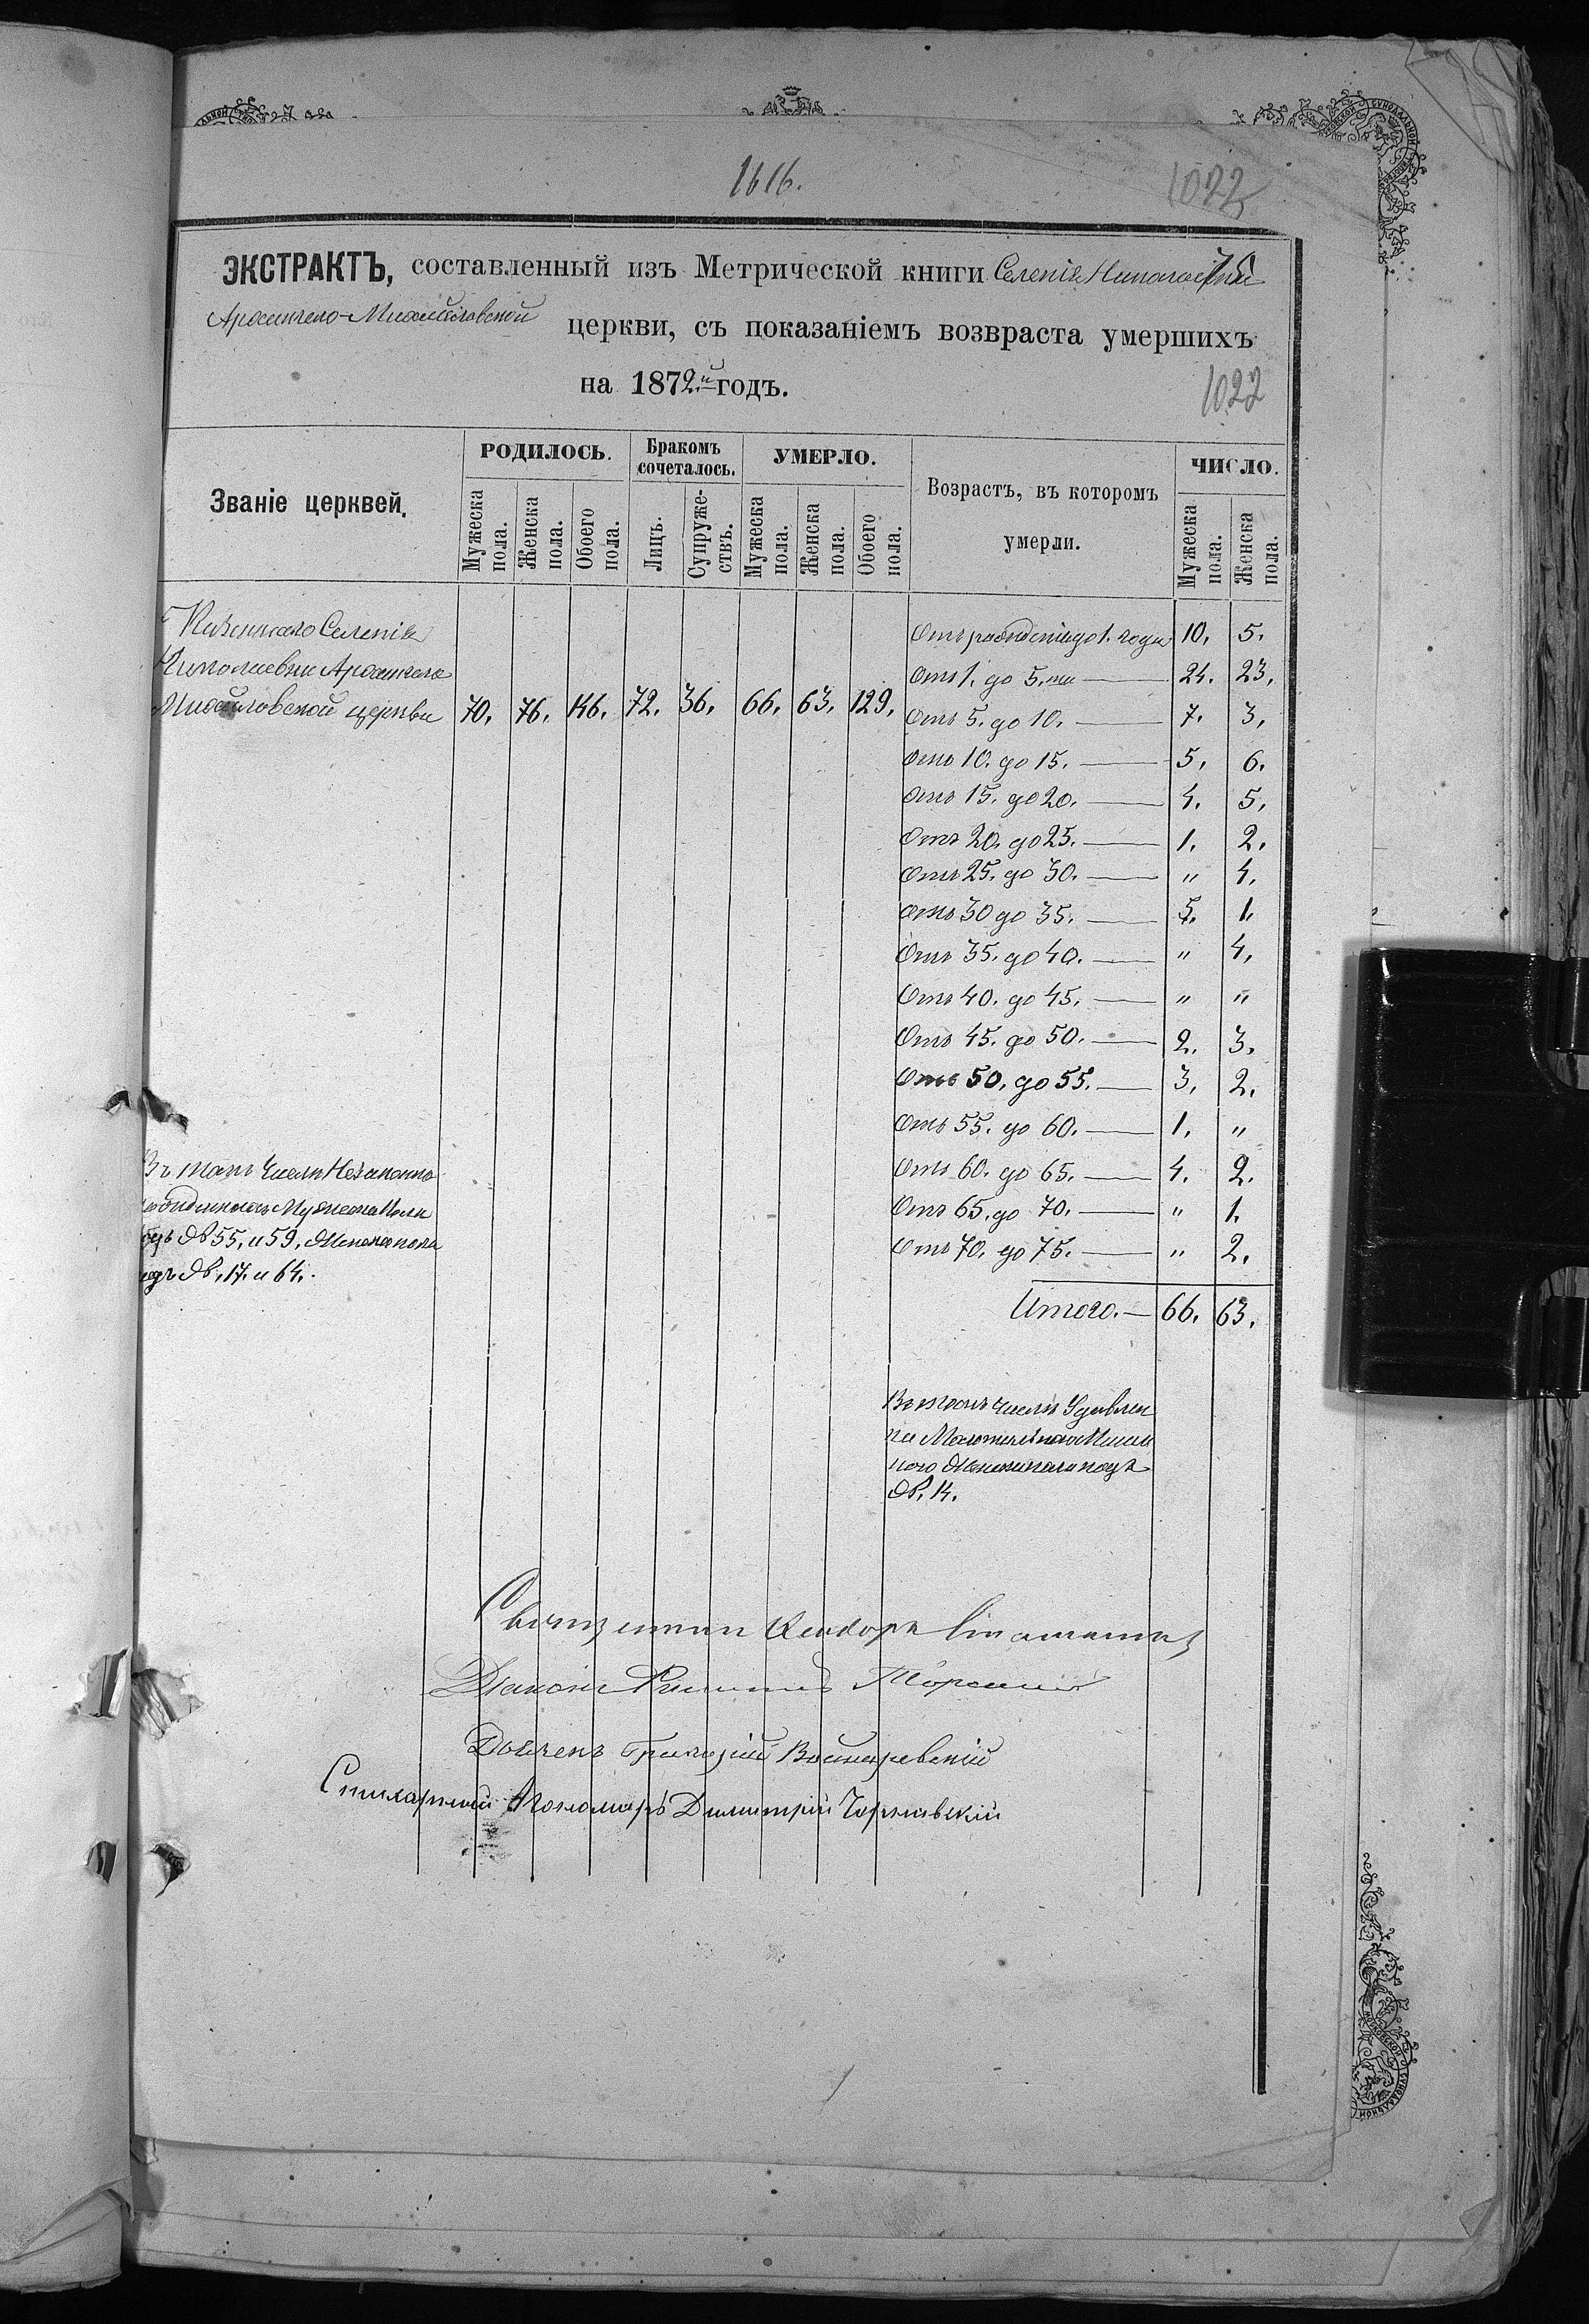 1616.
1022
ЭКСТРАКТЪ, составленный изъ Метрической книги Селенія Николаевки
75
Архангело-Михайловской церкви, съ показаніемъ возвраста умершихъ
на 1872.й годъ.
1022
Званіе церквей.
РОДИЛОСЬ.
Мужеска пола.
Женска пола.
Обоего пола.
Бракомъ сочеталось.
Лицъ.
Супружествъ.
УМЕРЛО.
Мужеска пола.
Женска пола.
Обоего пола.
Возрастъ, въ которомъ
умерли.
ЧИСЛО.
Мужеска пола.
Женска пола.
Казеннаго Селенія
Николаевки Архангело
Михайловской церкви 70. 76. 146. 72. 36. 66. 63. 129.
Отъ рожденія до 1. года 10. 5.
Отъ 1. до 5.ти — 24. 23.
Отъ 5. до 10. — 7. 3.
Отъ 10. до 15. — 5. 6.
Отъ 15. до 20. — 4. 5.
Отъ 20. до 25. — 1. 2.
Отъ 25. до 30. — " 4.
Отъ 30 до 35. — 5. 1.
Отъ 35. до 40. — " 4.
Отъ 40. до 45. — " "
Отъ 45. до 50. — 2. 3.
Отъ 50. до 55. — 3. 2.
Отъ 55. до 60. — 1. "
Отъ 60. до 65. — 4. 2.
Отъ 65. до 70. — " 1.
Отъ 70. до 75. — " 2.
Итого. — 66. 63.
Въ томъ числѣ Незаконно
рожденныхъ Мужеска Пола
подъ № 55. и 59. Женска пола
подъ №. 17. и 64.
Въ томъ числѣ
женска пола подъ
№. 14.
Священникъ
Діаконъ
Дьячекъ Григорій
Стихарный Пономарь Димитрій Чернявскій